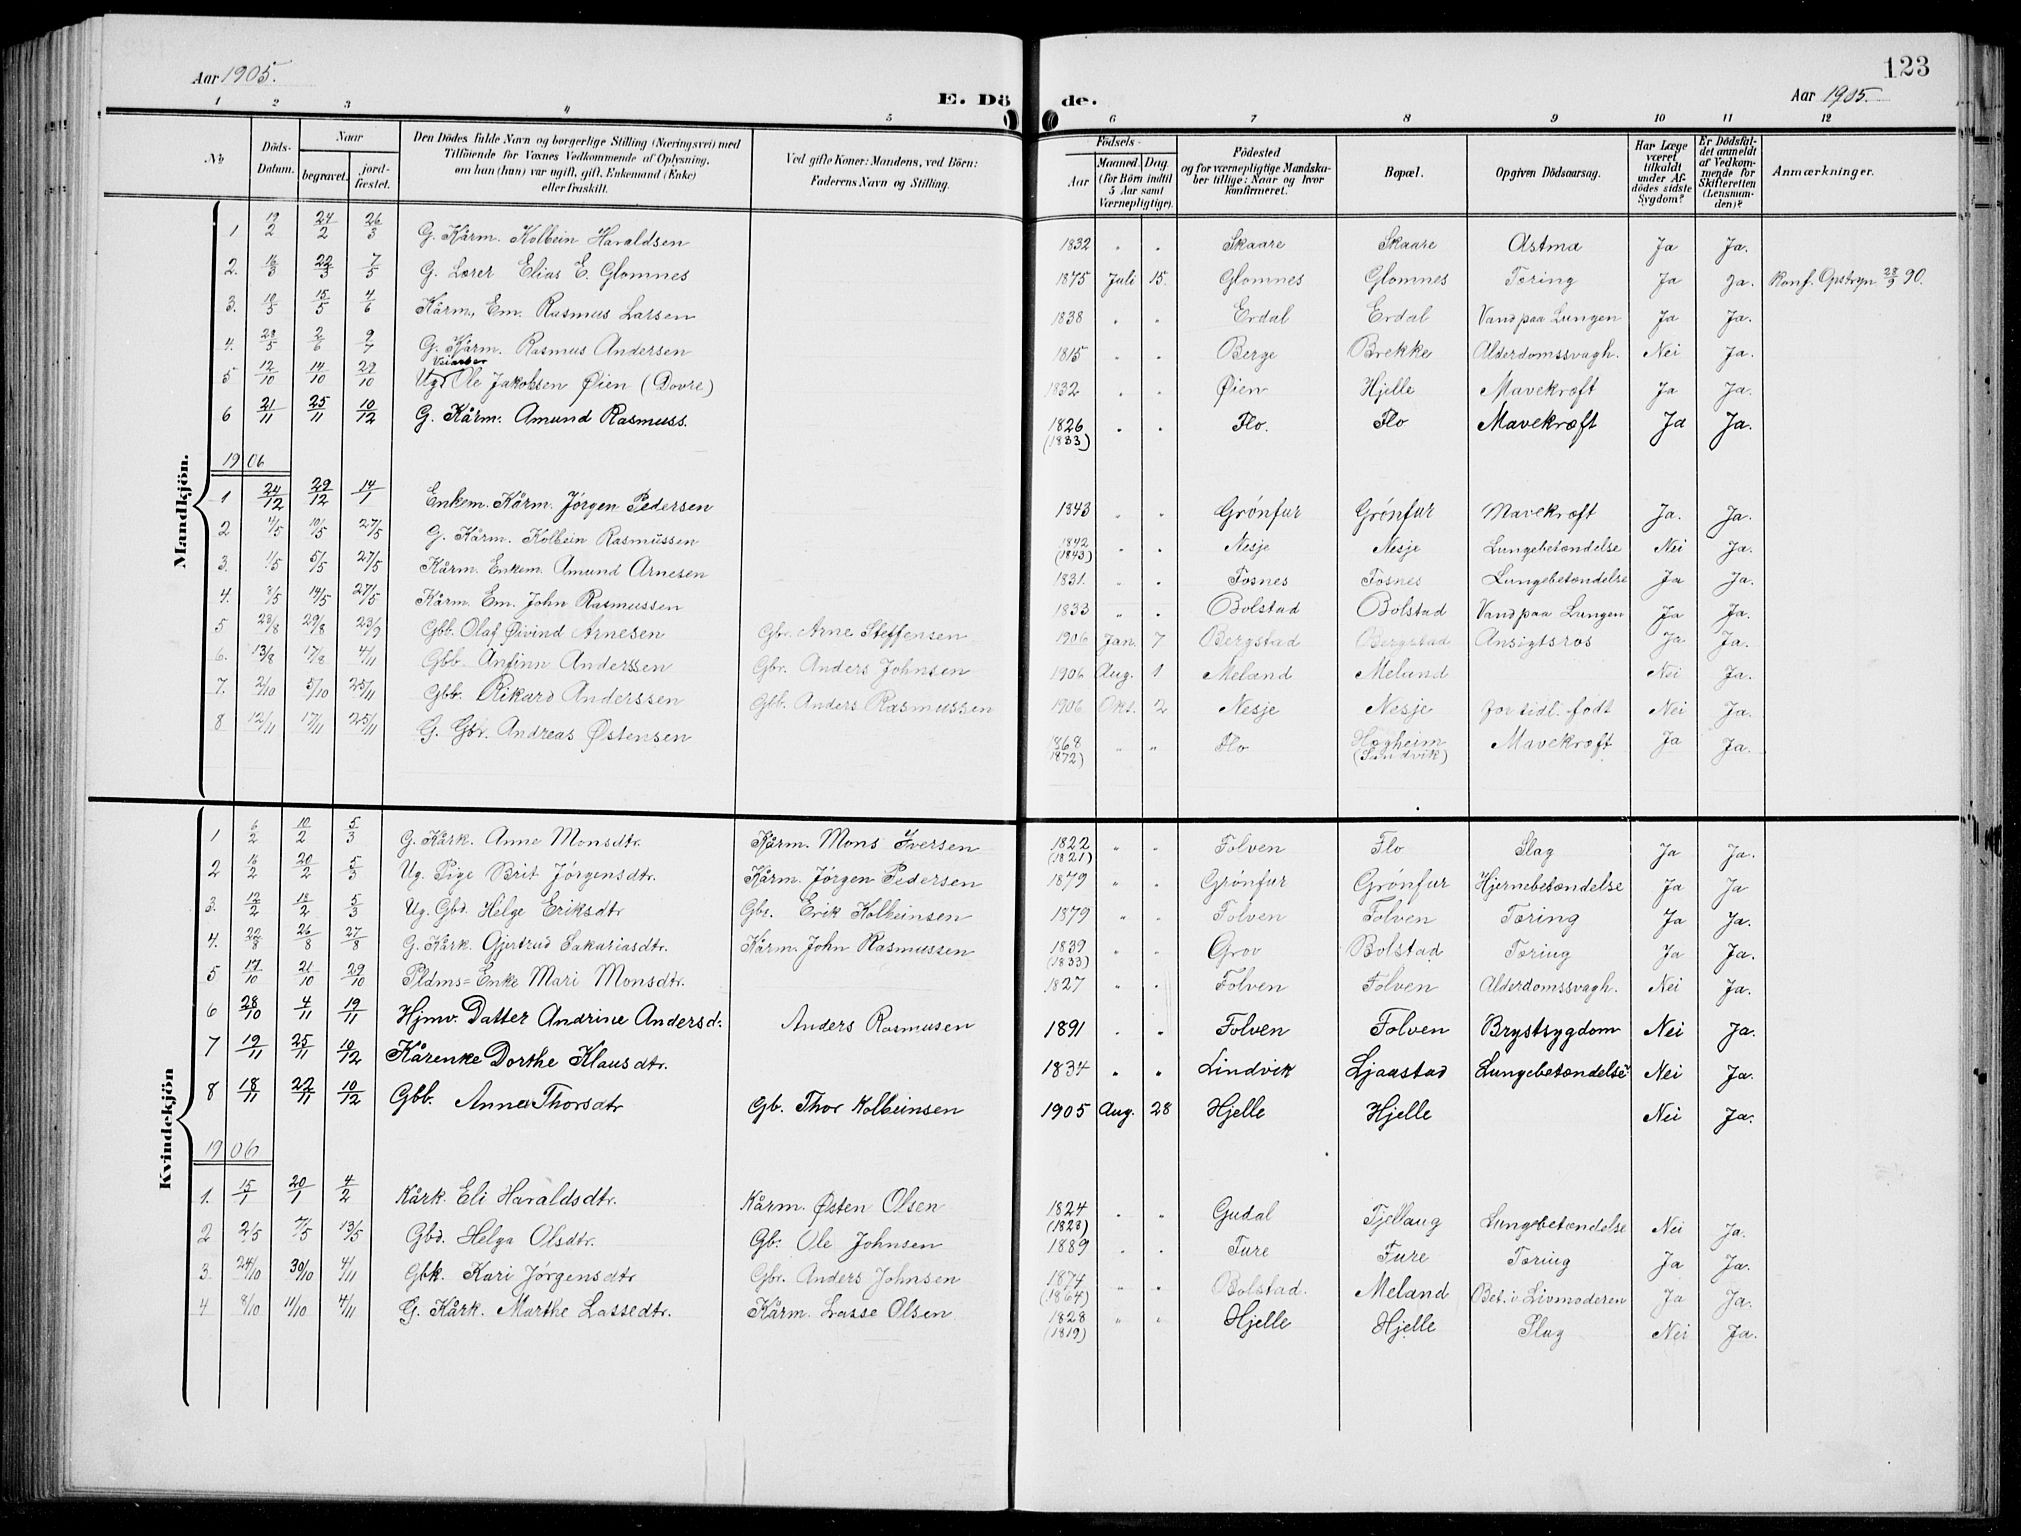 Aar 1905.
E. Dö de.
123
Aar 1905.
1 2 3 4 5 6 7 8 9 10 11 12
No
Döds-Datum.
Naar
begravet.
jord-fæstet.
Den Dödes fulde Navn og borgerlige Stilling (Næringsvei) med
Tilföiende for Voxnes Vedkommende af Oplysning,
om han (hun) var ugift, gift, Enkemand (Enke)
eller fraskilt.
Ved gifte Koner: Mandens, ved Börn:
Faderens Navn og Stilling.
Födsels-
Aar
Maaned. Dag.
(for Börn indtil
5 Aar samt
Værnepligtige).
Födested
og for værnepligtige Mandska-
ber tillige: Naar og hvor
konfirmeret.
Bopæl.
Opgiven Dödsaarsag.
Har Læge
været
tilkaldt
under Af-
dödes sidste
Sygdom?
Er Dödsfal-
det anmeldt
af Vedkom-
mende for
Skifteretten
(Lensman-
den)?
Anmærkninger.
Mandkjön.
1 19/2 24/2 26/3 G. Kårm. Kolbein Haraldsen 1832 " " Skaare Skaare Astma Ja Ja.
2. 16/3 22/3 7/5 G. Lærer Elias E. Glomnes 1875 Juli 15. Glomnes Glomnes Tæring Ja Ja. Konf. Opstryn 28/9 90.
3. 10/5 15/5 4/6 Kårm. Em. Rasmus Larsen 1838 " " Erdal Erdal Vand paa Lungen Ja Ja.
4. 28/5 2/6 9/7 G. Kårm. Rasmus Andersen 1815 " " Berge Brekke Alderdomssvagh. Nei Ja.
5 12/10 14/10 29/10 Ug. Veiarber Ole Jakobsen Øien (Dovre) 1832 " " Øien Hjelle Mavekræft Ja Ja.
6 21/11 25/11 10/12 G. Kårm. Amund Rasmuss. 1826 (1833) " " Flo. Flo Mavekræft Ja Ja.
1906
1 24/12 29/12 14/1 Enkem. Kårm. Jørgen Pedersen 1843 " " Grønfur Grønfur Mavekræft Ja. Ja.
2 4/5 10/5 27/5 G. Kårm. Kolbein Rasmussen 1842 (1843) " " Nesje Nesje Lungebetændelse Nei Ja.
3. 1/5 5/5 27/5 Kårm. Enkem. Amund Arnesen 1831. " " Fosnes Fosnes Lungebetændelse Ja Ja.
4. 8/5 14/5 27/5 Kårm. Em. John Rasmussen 1833 " " Bolstad Bolstad Vand paa Lungen Ja Ja.
5 23/8 29/8 23/9 Gbb. Olaf Øivind Arnesen Gbr. Arne Steffensen 1906 Jan. 7 Bergstad Bergstad Ansigtsros Ja Ja.
6. 13/8 17/8 4/11 Gbb. Anfinn Anderssen Gbr. Anders Johnsen 1906 Aug. 1 Meland Meland Nei Ja.
7. 2/10 5/10 25/11 Gbb. Rikard Anderssen Gbb. Anders Rasmussen 1906 Okt. 2 Nesje Nesje for tidl. født Nei Ja.
8 12/11 17/11 25/11 G. Gbr. Andreas Østensen 1868 1872) " " Flo Hægheim (Sandvik) Mavekræft Ja Ja.
Kvindekjön
1 6/2 10/2 5/3 G. Kårk. Anne Monsdtr. Kårm. Mons Iversen 1822 (1821) " " Folven Flo Slag Ja Ja.
2 16/2 20/2 5/3 Ug. Pige Brit Jørgensdtr. Kårm. Jørgen Pedersen 1879 " " Grønfur Grønfur Hjernebetændelse Ja Ja
3. 12/2 18/2 5/3 Ug. Gbd. Helge Eriksdtr Gbr. Erik Kolbeinsen 1879 " " Folven Folven Tæring Ja Ja.
4. 22/8 26/8 27/8 G. Kårk. Gjertrud Sakariasdtr. Kårm. John Rasmussen 1839 (1833) " " Grov Bolstad Tæring Ja Ja.
5 17/10 21/10 29/10 Pldms= Enke Mari Monsdtr. 1827 " " Folven Folven Alderdomssvagh. Nei Ja.
6 28/10 4/11 19/11 Hjmv. Datter Andrine Andersd. Anders Rasmusen 1891 " " Folven Folven Brystsygdom Nei Ja.
7 19/11 25/11 10/12 Kårenke Dorthe Klausdtr. 1834 " " Lindvik Ljaastad Lungebetændelse Nei Ja.
8 18/11 22/11 10/12 Gbb. Anna Thorsdtr Gb. Thor Kolbeinsen 1905 Aug. 28 Hjelle Hjelle Nei Ja.
1906
1. 15/1 20/1 4/2 Kårk. Eli Haraldsdtr. Kårm. Østen Olsen 1824 (1828) " " Gudal Fjellaug Lungebetændelse Nei Ja.
2 2/5 7/5 13/5 Gbd. Helga Olsdtr. Gb. Ole Johnsen 1889 " " Fure Fure Tæring Ja Ja.
3 24/10 30/10 4/11 Gbk. Kari Jørgensdtr Gbr. Anders Johnsen 1874 (1864) " " Bolstad. Meland Bet. i Livmoderen Ja Ja.
4 8/10 11/10 4/11 G. Kårk. Marthe Lassedtr. Kårm. Lasse Olsen 1828 (1819) " " Hjelle Hjelle Slag Nei Ja.